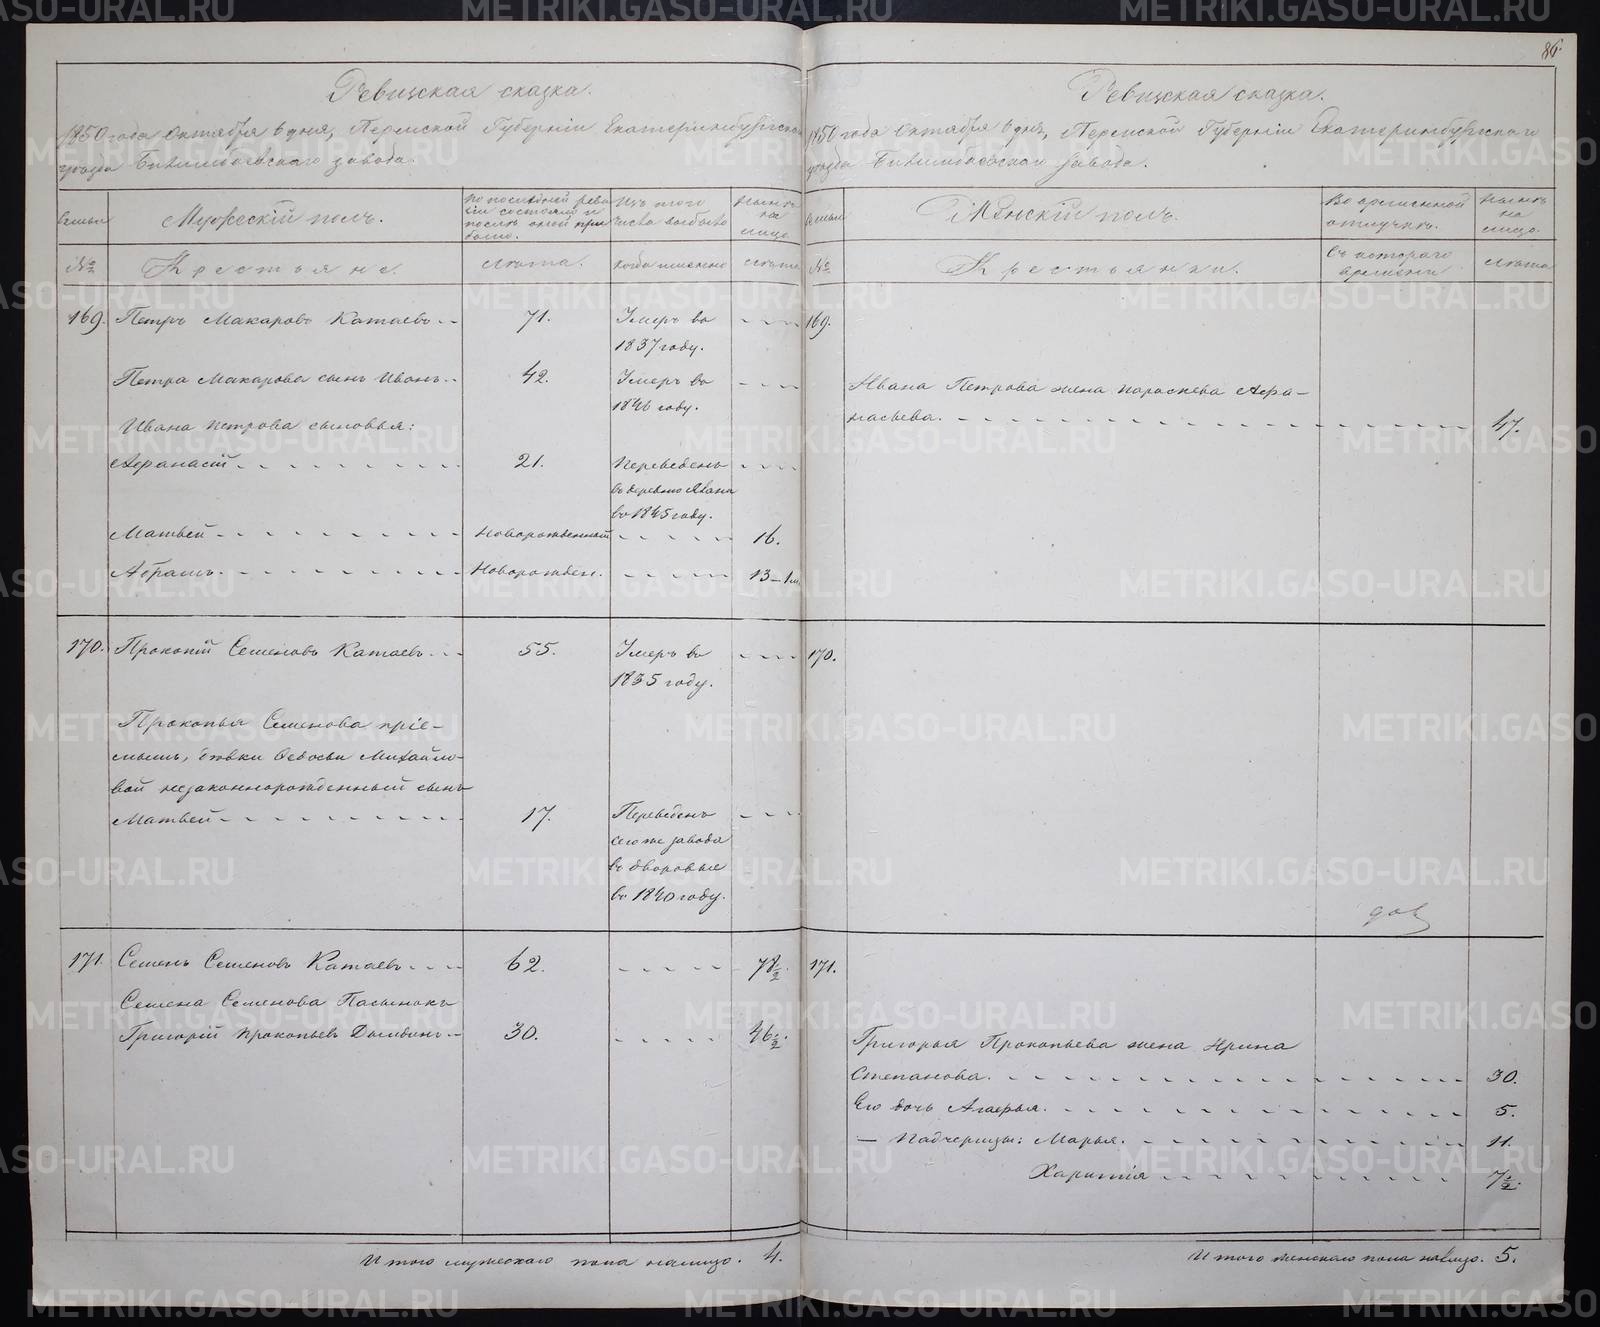 86.
Ревижская сказка.
1850 года Октября 6 дня, Пермской Губерніи Екатеринбургскаго
уезда Билимбаевскаго завода.
семьи
Мужескій полъ.
По последней реви
зіи состояло и
после оной при
было.
Изъ того
числа выбыло
Ныне
на
лицо
№
Крестьяне.
Лета.
когда именно
Лета
169.
Петръ Макаровъ Катаевъ
71.
Умеръ во
1837 году.
Петра Макарова сынъ Иванъ
42.
Умеръ во
1846 году.
Ивана Петрова сыновья:
Афанасій
21.
Переведенъ
во 1845 году.
Матвей
Новорожденный
16.
Абрамъ
Новорожден.
13-1м.
170.
Прокопій Семеновъ Катаевъ
55.
Умеръ во
1835 году.
Прокопья Семенова пріе-
мышъ, девки Федосьи Михайло-
вой незаконнорожденный сынъ
Матвей
17.
Переведенъ
сего же завода
въ дворовые
во 1840 году.
171.
Семенъ Семеновъ Катаевъ
62.
78½.
Семена Семенова Пасынокъ
Григорій Прокопьевъ
30.
46½.
Итого мужескаго пола налицо. 4.
Ревижская сказка.
1850 года Октября 6 дня, Пермской Губерніи Екатеринбургскаго
уезда Билимбаевскаго завода.
семьи
Женскій полъ.
Во временной
отлучке.
Ныне
на
лицо.
№
Крестьянки.
Съ котораго
времени
Лета
169.
Ивана Петрова жена Пораскева Афа-
насьева.
47.
170.
171.
Григорья Прокопьева жена Ирина
Степанова.
30.
Его дочь Агафья.
5.
— Падчерицы: Марья.
11.
Харитія
7½.
Итого женскаго пола налицо. 5.
METRIKI.GASO-URAL.RU